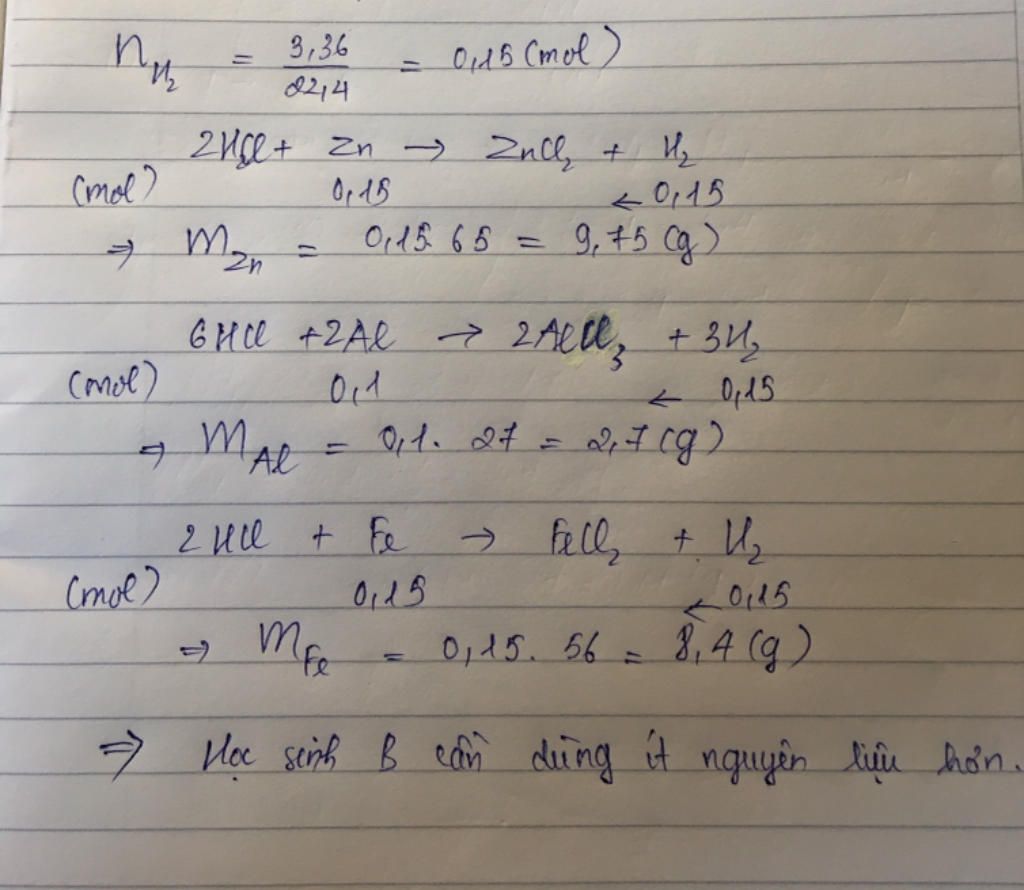 n_H₂ = 3,36/22,4 = 0,15 (mol)
2HCl + Zn → ZnCl₂ + H₂
(mol) 0,15 ← 0,15
⇒ m_Zn = 0,15.65 = 9,75 (g)
6HCl + 2Al → 2AlCl₃ + 3H₂
(mol) 0,1 ← 0,15
⇒ m_Al = 0,1. 27 = 2,7 (g)
2HCl + Fe → FeCl₂ + H₂
(mol) 0,15 ← 0,15
⇒ m_Fe = 0,15. 56 = 8,4 (g)
⇒ Học sinh B cần dùng ít nguyên liệu hơn.